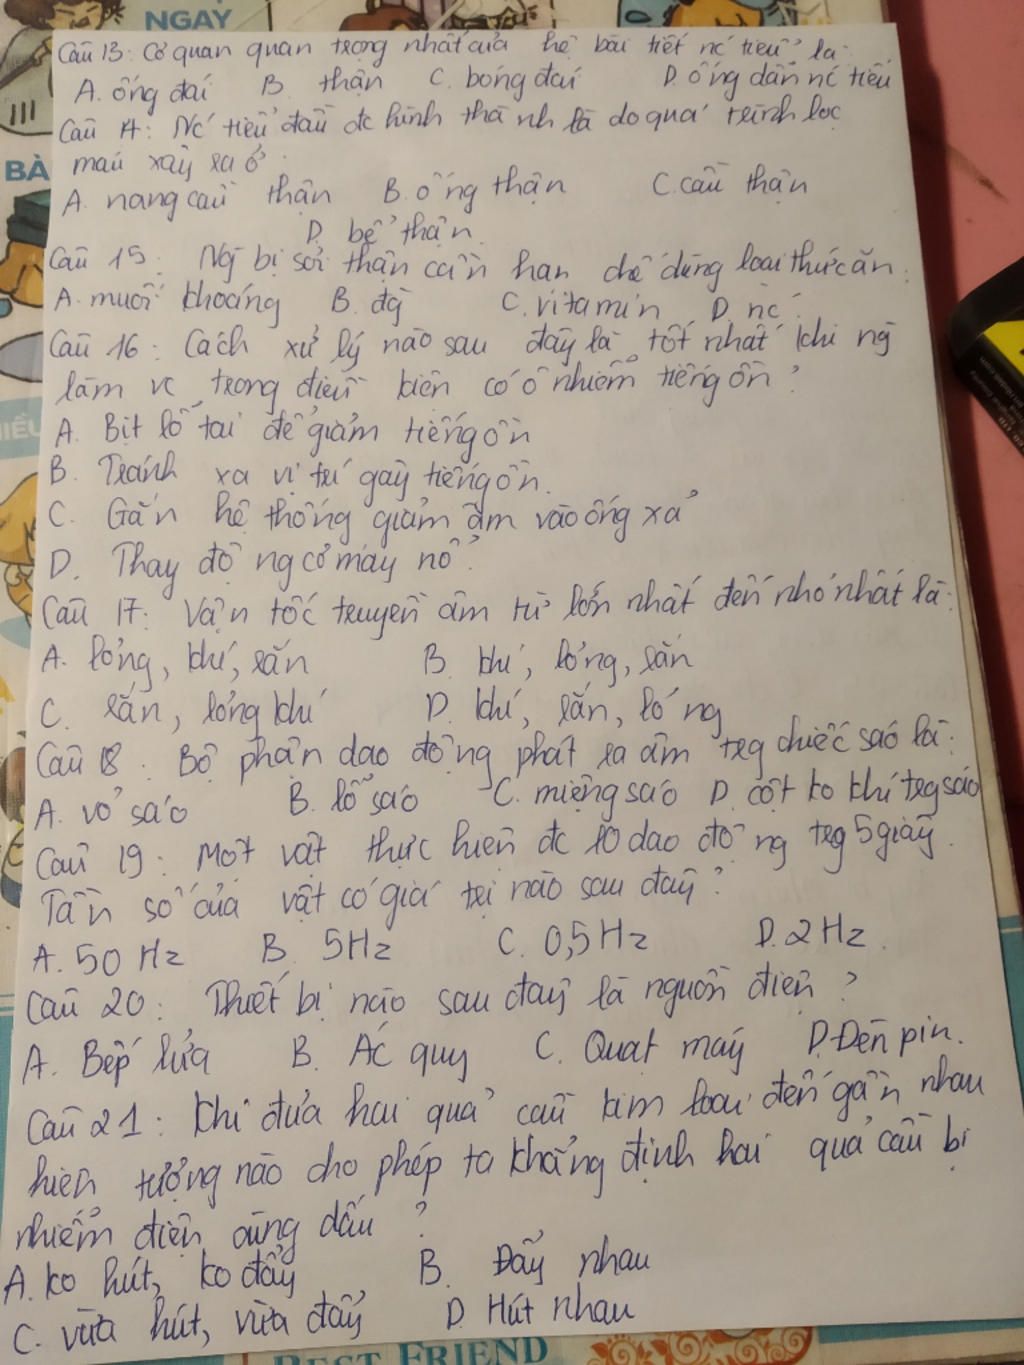 NGAY
Câu 13: Cơ quan quan trọng nhất của hệ bài tiết nc tiểu là:
A. ống đái B. thận C. bóng đái D. ống dẫn nc tiểu
Câu 14: Nc tiểu đầu đc hình thành là do quá trình lọc
BÀ
máu xảy ra ở:
A. nang cầu thận B. ống thận C. cầu thận
D. bể thận.
Câu 15: Ng bị sỏi thận cần hạn chế dùng loại thức ăn:
A. muối khoáng B. đg C. vitamin D. nc
Câu 16: Cách xử lý nào sau đây là tốt nhất khi ng
làm vc trong điều kiện có ô nhiễm tiếng ồn?
A. Bịt lỗ tai để giảm tiếng ồn
B. Tránh xa vị trí gây tiếng ồn.
C. Gắn hệ thống giảm âm vào ống xả
D. Thay động cơ máy nổ.
Câu 17: Vận tốc truyền âm từ lớn nhất đến nhỏ nhất là:
A. lỏng, khí, rắn B. khí, lỏng, rắn
C. rắn, lỏng khí D. khí, rắn, lỏng
Câu 18: Bộ phận dao động phát ra âm trg chiếc sáo là:
A. vỏ sáo B. lỗ sáo C. miệng sáo D. cột ko khí trg sáo
Câu 19: Một vật thực hiện đc 10 dao động trg 5 giây.
Tần số của vật có giá trị nào sau đây?
A. 50 Hz B. 5Hz C. 0,5Hz D. 2Hz.
Câu 20: Thiết bị nào sau đây là nguồn điện?
A. Bếp lửa B. Ắc quy C. Quạt máy D. Đèn pin.
Câu 21: Khi đưa hai quả cầu kim loại đến gần nhau
hiện tượng nào cho phép ta khẳng định hai quả cầu bị
nhiễm điện cùng dấu?
A. ko hút, ko đẩy B. Đẩy nhau
C. vừa hút, vừa đẩy D. Hút nhau
BEST FRIEND